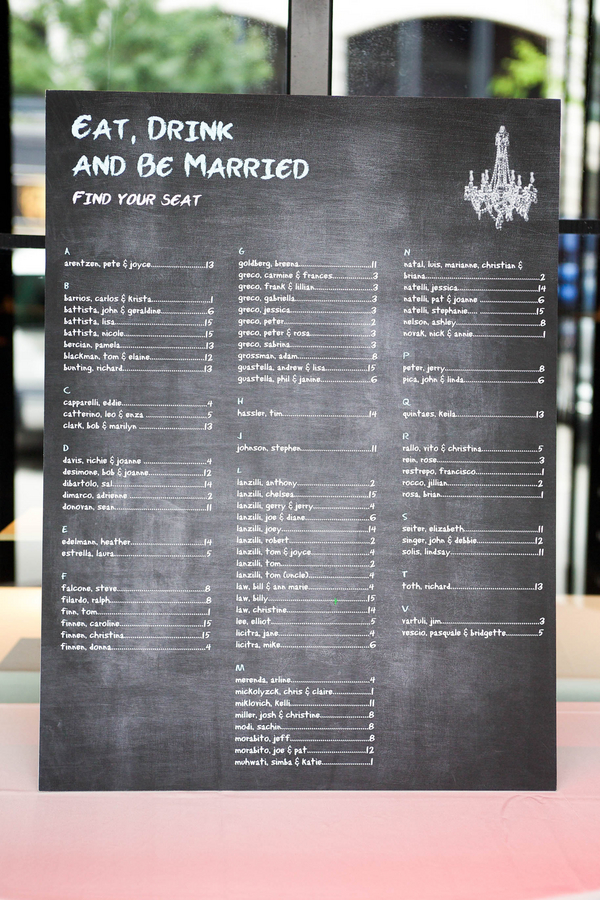 Eat, Drink
and Be Married
Find your seat
A
arentzen, pete & joyce 13
B
barrios, carlos & krista 1
battista, john & geraldine 6
battista, lisa 15
battista, nicole 15
bercian, pamela 13
blackman, tom & elaine 12
bunting, richard 13
C
capparelli, eddie 4
catterino, leo & enza 5
clark, bob & marilyn 13
D
davis, richie & joanne 4
desimone, bob & joanne 12
dibartolo, sal 14
dimarco, adrienne 2
donovan, sean 11
E
edelmann, heather 14
estrella, laura 5
F
falcone, steve 8
filardo, ralph 8
finn, tom 1
finnen, caroline 15
finnen, christina 15
finnen, donna 4
G
goldberg, breena 11
greco, carmine & frances 3
greco, frank & lillian 3
greco, gabriella 3
greco, jessica 3
greco, peter 2
greco, peter & rosa 3
greco, sabrina 3
grossman, adam 8
guastella, andrew & lisa 15
guastella, phil & janine 6
H
hassler, tim 14
J
johnson, stephen 11
L
lanzilli, anthony 2
lanzilli, chelsea 15
lanzilli, gerry & jerry 4
lanzilli, joe & diane 6
lanzilli, joey 14
lanzilli, robert 2
lanzilli, tom & joyce 4
lanzilli, tom 2
lanzilli, tom (uncle) 4
law, bill & ann marie 4
law, billy 15
law, christine 14
lee, elliot 5
licitra, jane 4
licitra, mike 6
M
merenda, arline 4
mickolyzck, chris & claire 1
miklovich, kelli 11
miller, josh & christine 8
modi, sachin 8
morabito, jeff 8
morabito, joe & pat 12
muhwati, simba & katie 1
N
natal, luis, marianne, christian &
briana 2
natelli, jessica 14
natelli, pat & joanne 6
natelli, stephanie 15
nelson, ashley 8
novak, nick & annie 1
P
peter, jerry 8
pica, john & linda 6
Q
quintaes, keila 13
R
rallo, vito & christina 5
rein, rose 3
restrepo, francisco 1
rocco, jillian 2
rosa, brian 1
S
seiter, elizabeth 11
singer, john & debbie 12
solis, lindsay 11
T
toth, richard 13
V
vartuli, jim 3
vescio, pasquale & bridgette 5